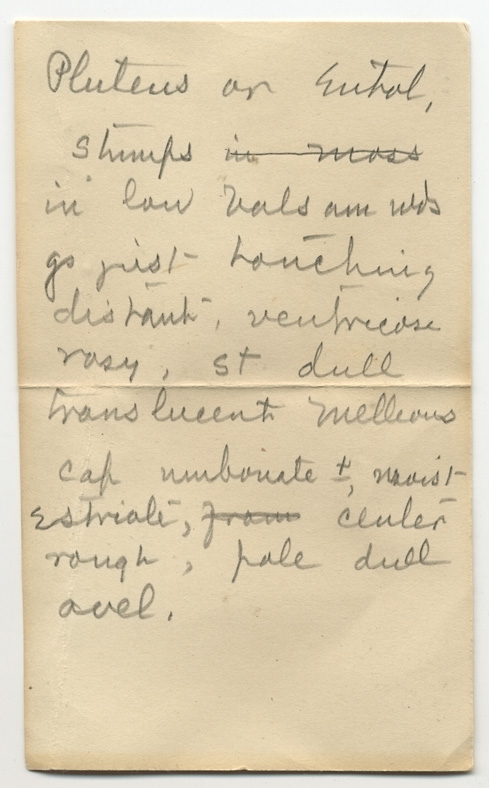 Pluteus or Entol,
stumps in moss
in low balsam wds
gs just touching
distant, ventricose
rosy, st dull
translucent melleous
cap umbonate ±, moist
striate, from center
rough, pale dull
avel.